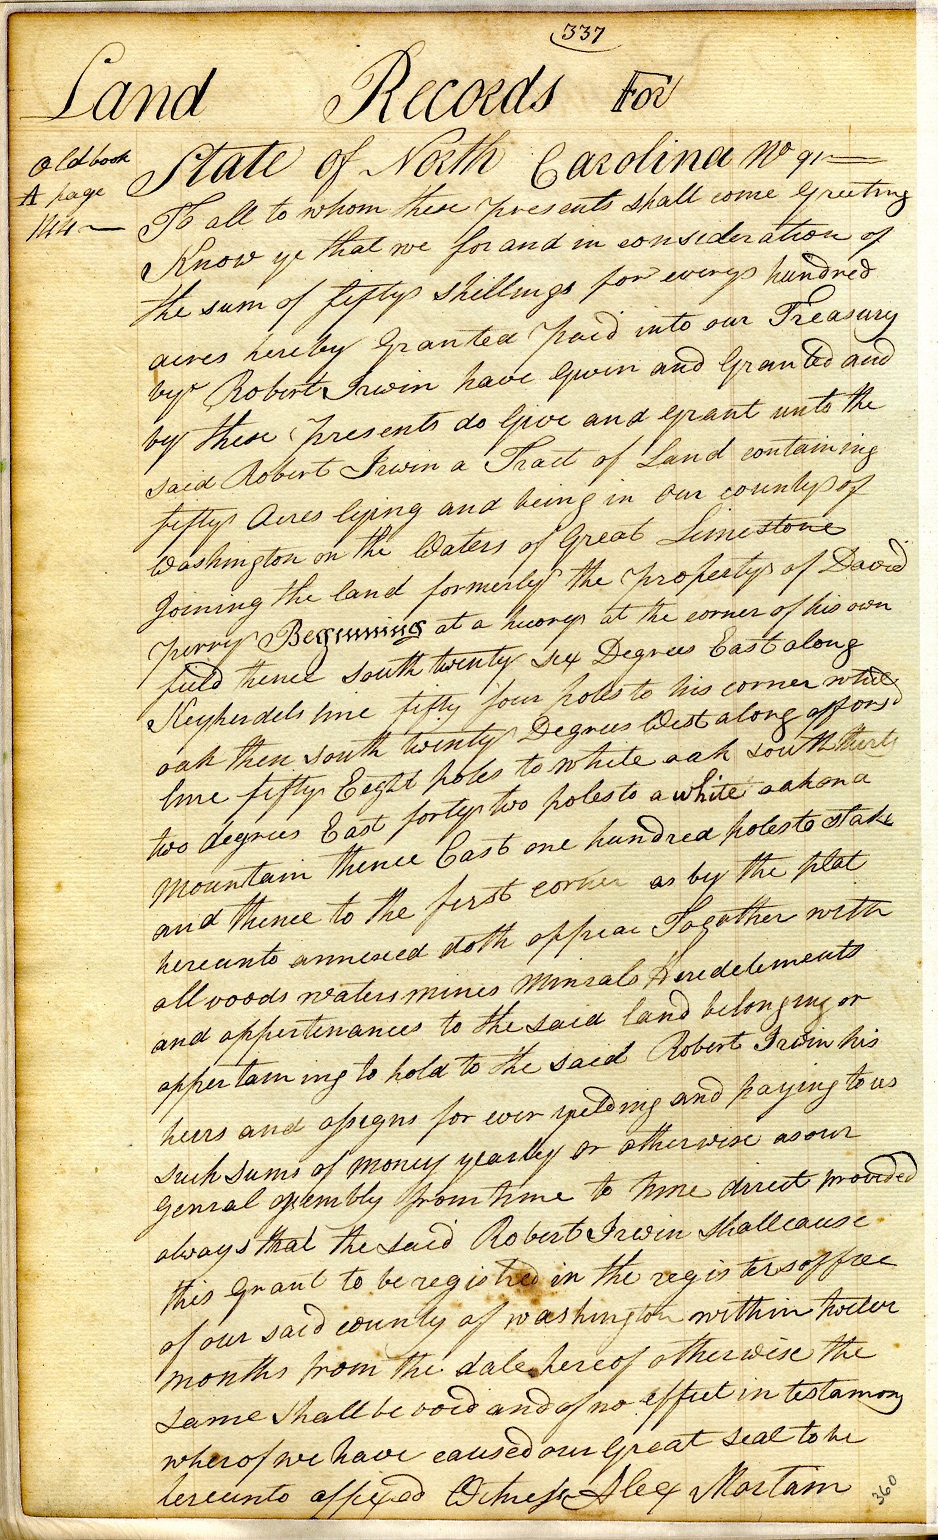 337
Land Records For
Old book
A page
144
State of North Carolina No 91
To all to whom these presents shall come Greeting
Know ye that we for and in consideration of
the sum of fifty shillings for every hundred
acres hereby Granted paid into our Treasury
by Robert Irwin have Given and Granted and
by these presents do Give and grant unto the
said Robert Irwin a Tract of Land containing
fifty Acres lying and being in our county of
Washington on the Waters of Great Limestone
Joining the land formerly the property of David
perry Beginning at a hicory at the corner of his own
field thence south twenty six Degrees East along
line fifty four poles to his corner white
oak then south twenty Degrees West along
line fifty Eeght poles to white oak south thirty
two degrees East forty two poles to a white oak on a
Mountain thence East one hundred poles to stake
and thence to the first corner as by the plat
hereunto annexed doth appear Together with
all woods waters mines Minrals Heredetements
and appertenances to the said land belonging or
appertaining to hold to the said Robert Irwin his
heirs and assigns for ever yielding and paying to us
such sums of money yearley or otherwise as our
Genral assembly from time to time direct provided
always that the said Robert Irwin shall cause
this Grant to be registred in the registers offree
of our said county of washington within twelve
months from the date hereof otherwise the
same shall be void and of no effect in testamony
wherof we have caused our Great seal to be
hereunto affixed Witness Alex Martain
360